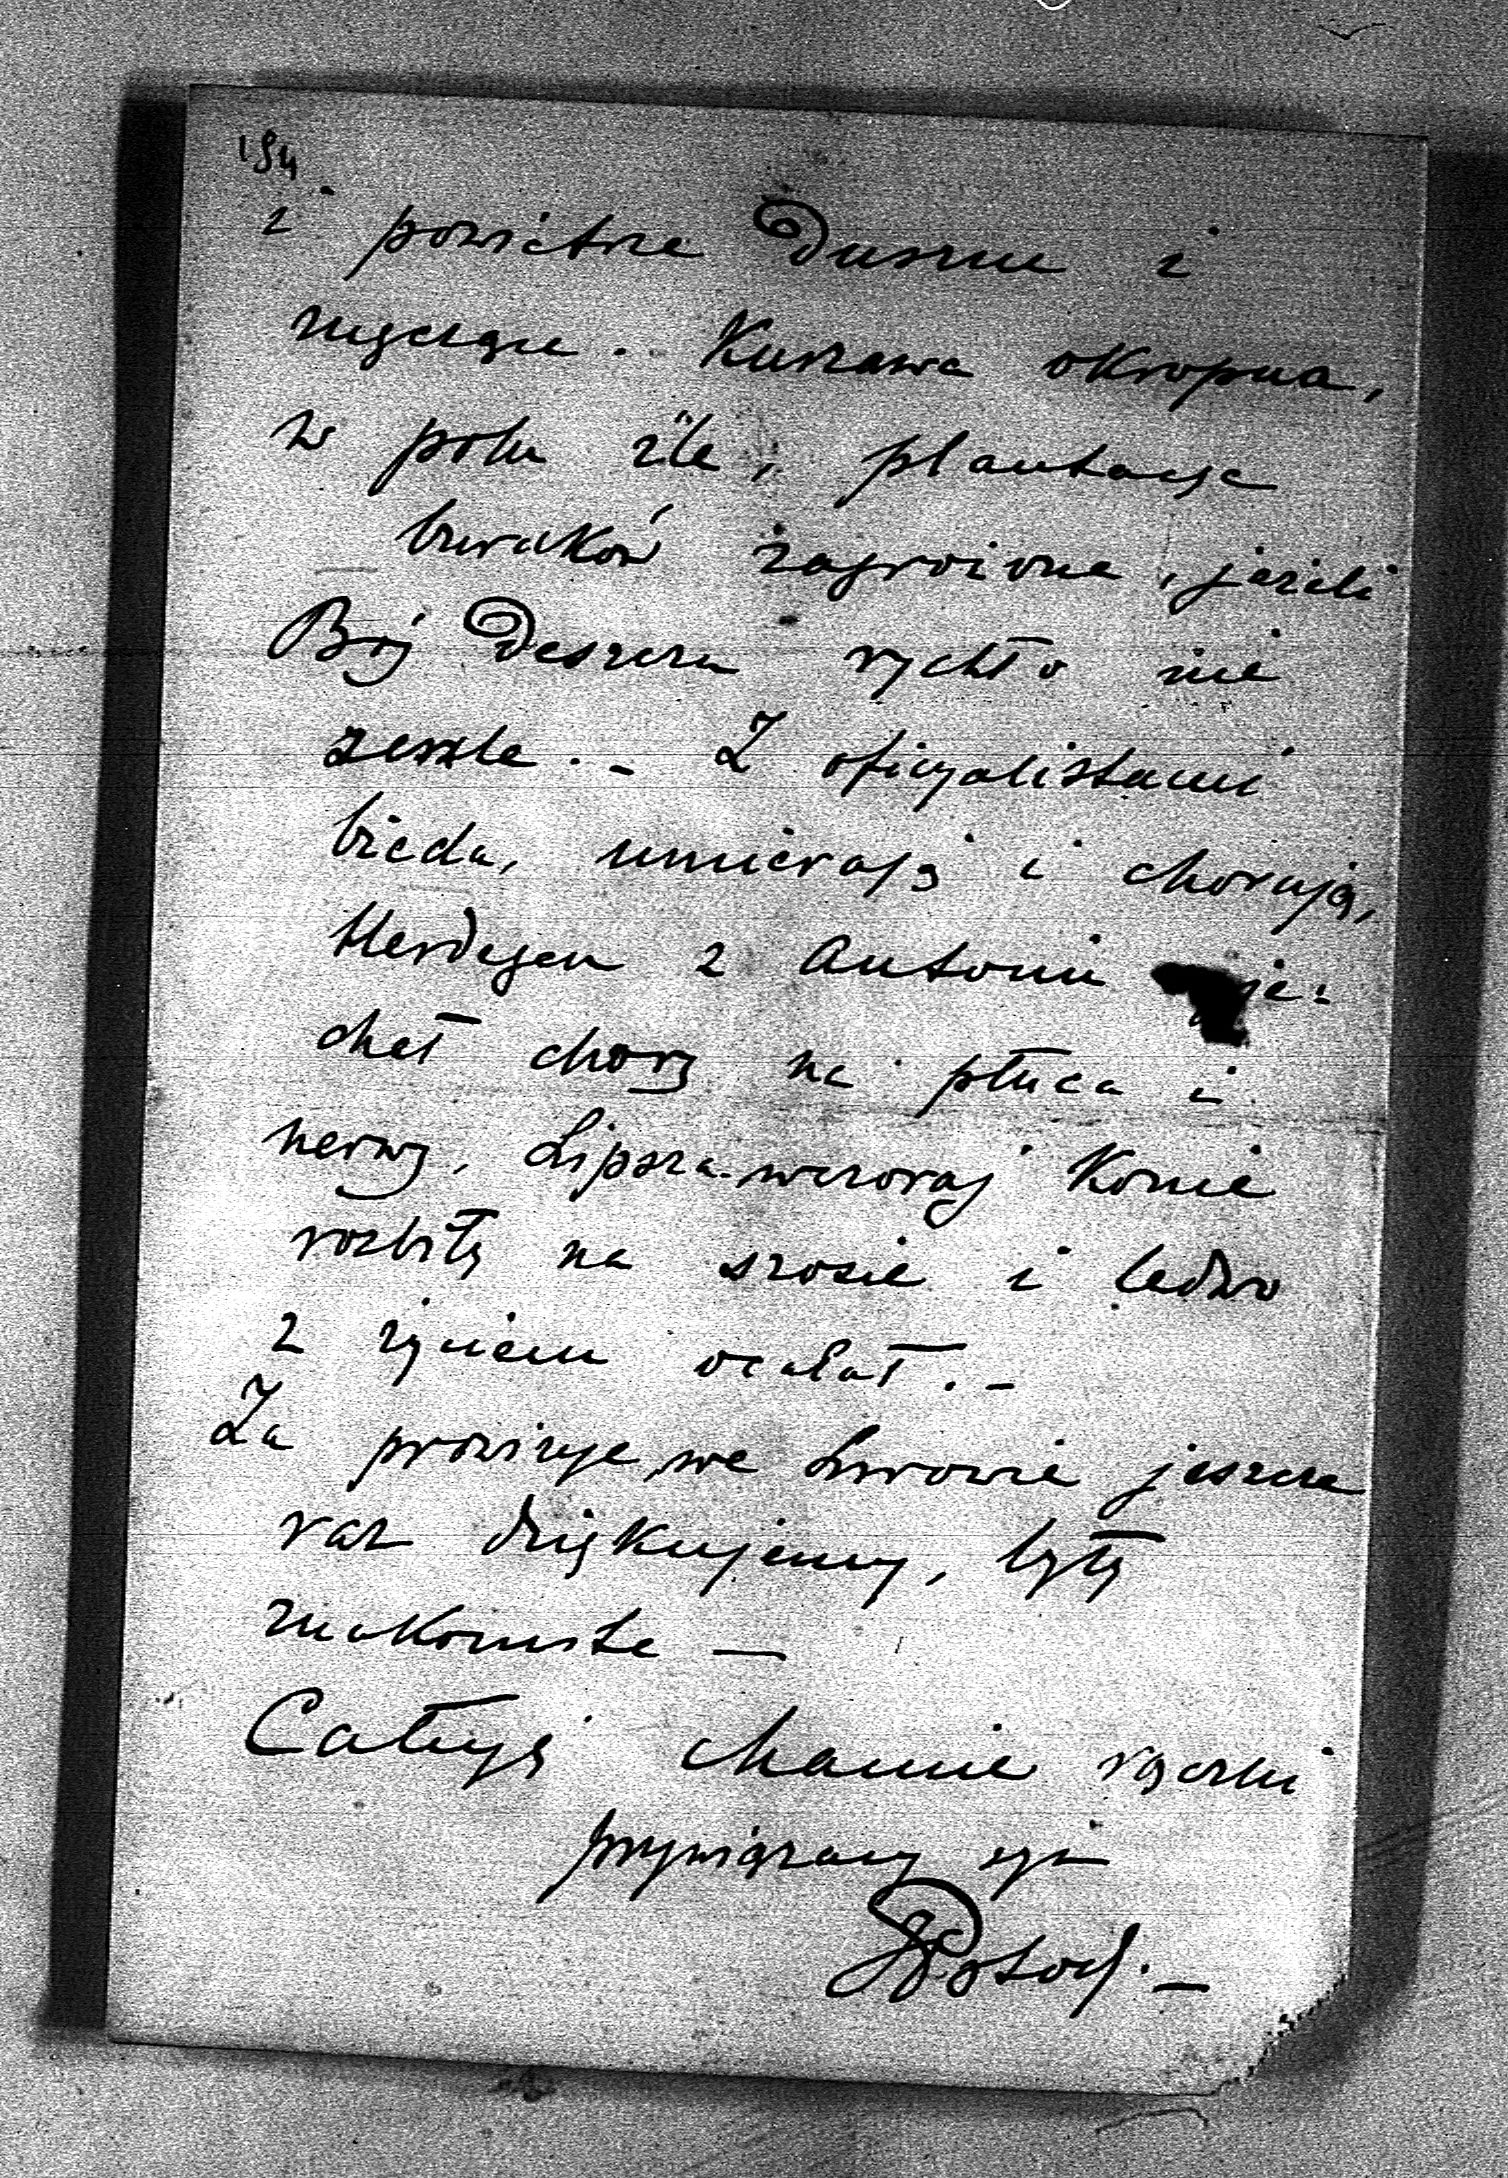 194.
i powietrze duszne i
męczące. Kurzawa okropna,
w polu źle, plantacje
buraków zagrożone, jeżeli
Bój deszczu rychło nie
ześle. - Z oficyalistami
bieda, umierają i chorują,
Herdegen z Antonin
chał chory na płuca i
nerwy, Lipsza wczoraj konie
rozbiły na szosie i ledwo
z życiem ocalał. -
Za prowizye we Lwowie jeszcze
raz dziękujemy, były
znakomite —
Całuję Mamie rączki
przywiązany syn
JPotock. -